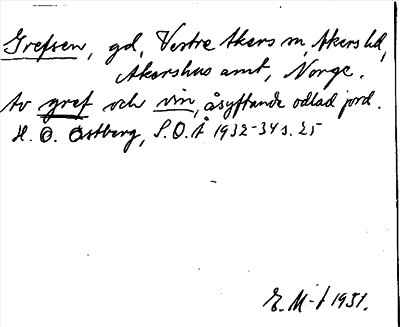 Grefsen, gd, Vestre Akers sn, Akers hd,
Akershus amt, Norge.
Av gref och vin, åsyftande odlad jord.
H. O. Østberg, S.O.Å 1932-34 s. 25
E. M-t 1951.